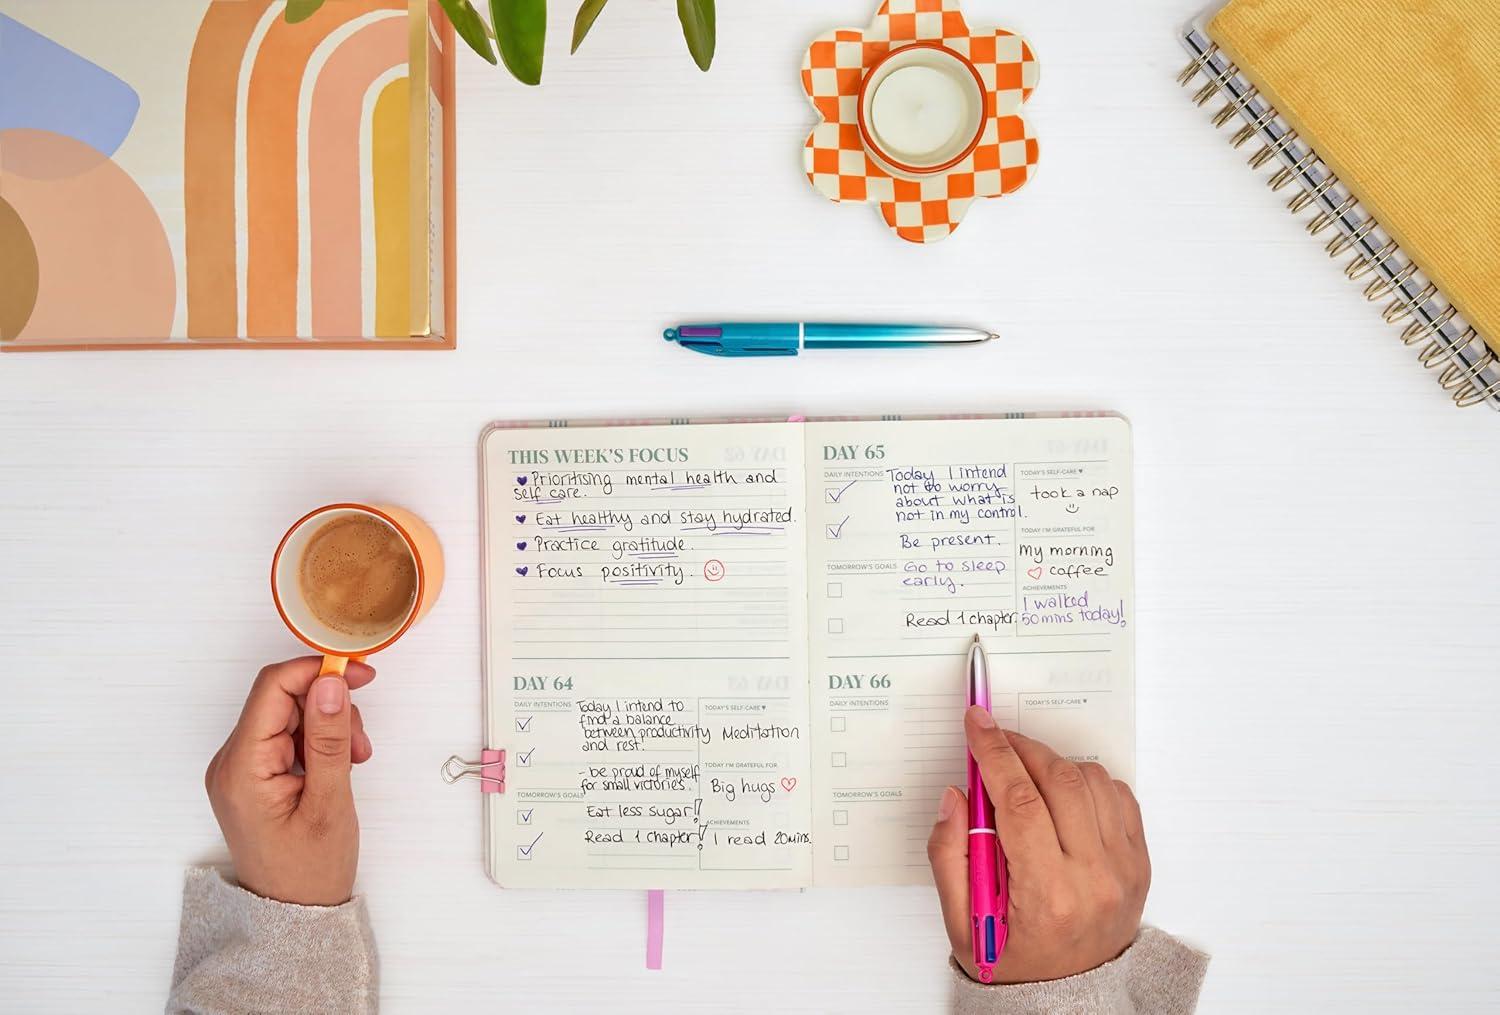 THIS WEEK'S FOCUS
Prioritising mental health and
self care.
Eat healthy and stay hydrated.
Practice gratitude.
Focus positivity.
DAY 64
DAILY INTENTIONS
Today I intend to
find a balance
between productivity
and rest.
- be proud of myself
for small victories.
TOMORROW'S GOALS
Eat less sugar!
Read 1 chapter!
TODAY'S SELF-CARE ♥
Meditation
TODAY I'M GRATEFUL FOR
Big hugs
ACHIEVEMENTS
I read 20mins.
DAY 65
DAILY INTENTIONS
Today I intend
not to worry
about what is
not in my control.
Be present.
TOMORROW'S GOALS
Go to sleep
early.
Read 1 chapter.
TODAY'S SELF-CARE ♥
took a nap
TODAY I'M GRATEFUL FOR
My morning
coffee
ACHIEVEMENTS
I walked
50mins today!
DAY 66
DAILY INTENTIONS
TOMORROW'S GOALS
TODAY'S SELF-CARE ♥
GRATEFUL FOR